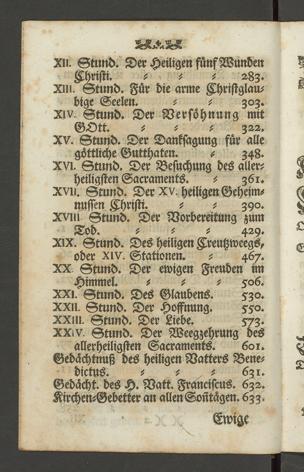 XII. Stund. Der Heiligen fünf Wunden
Christi. 283.
XIII. Stund. Für die arme Christglau-
bige Seelen. 303.
XIV. Stund. Der Versöhnung mit
GOtt. 322.
XV. Stund. Der Danksagung für alle
göttliche Gutthaten. 348.
XVI. Stund. Der Besuchung des aller-
heiligsten Sacraments. 361.
XVII. Stund. Der XV. heiligen Geheim-
nussen Christi. 390.
XVIII Stund. Der Vorbereitung zum
Tod. 429.
XIX. Stund. Des heiligen Creutzweegs,
oder XIV. Stationen. 467.
XX. Stund. Der ewigen Freuden im
Himmel. 506.
XXI. Stund. Des Glaubens. 530.
XXII. Stund. Der Hoffnung. 550.
XXIII. Stund. Der Liebe. 573.
XXIV. Stund. Der Weegzehrung des
allerheiligsten Sacraments. 601.
Gedächtnuß des heiligen Vatters Bene-
dictus. 631.
Gedächt. des H. Vatt. Franciscus. 632.
Kirchen-Gebetter an allen Soñtägen. 633.
Ewige